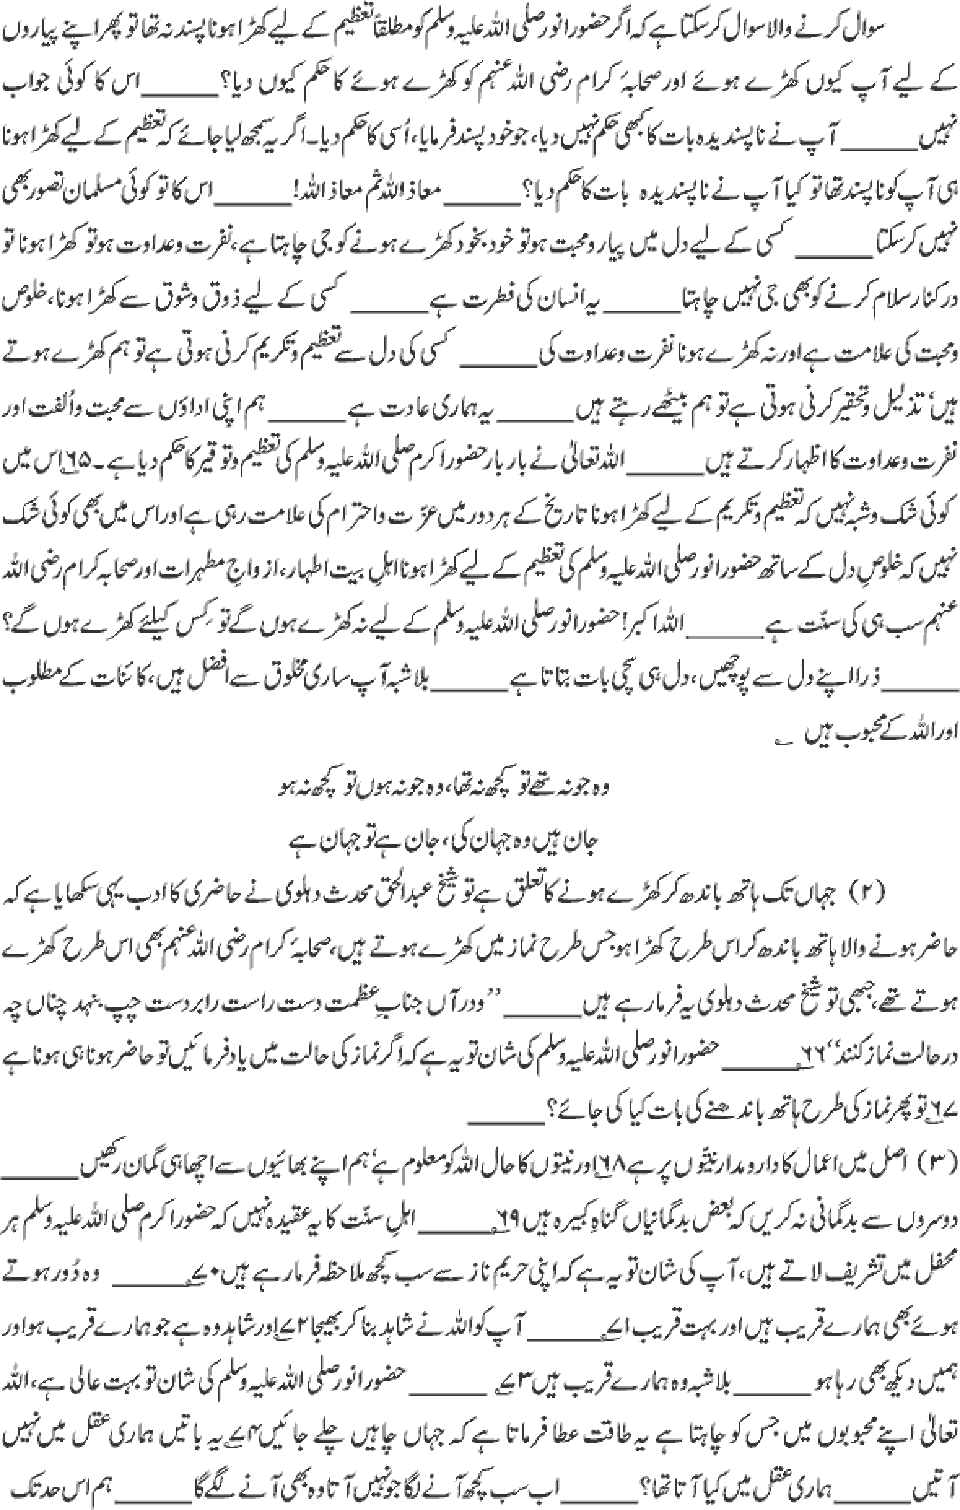 سوال کرنے والا سوال کر سکتا ہے کہ اگر حضور انور صلی اللہ علیہ وسلم کو مطلقاً تعظیم کے لیے کھڑا ہونا پسند نہ تھا تو پھر اپنے پیاروں
کے لیے آپ کیوں کھڑے ہوئے اور صحابۂ کرام رضی اللہ عنہم کو کھڑے ہونے کا حکم کیوں دیا؟______اس کا کوئی جواب
نہیں______ آپ نے ناپسندیدہ بات کا کبھی حکم نہیں دیا، جو خود پسند فرمایا، اُسی کا حکم دیا۔ اگر یہ سمجھ لیا جائے کہ تعظیم کے لیے کھڑا ہونا
ہی آپ کو ناپسند تھا تو کیا آپ نے ناپسندیدہ بات کا حکم دیا؟______ معاذ اللہ ثم معاذ اللہ!______اس کا تو کوئی مسلمان تصور بھی
نہیں کر سکتا______ کسی کے لیے دل میں پیار و محبت ہو تو خود بخود کھڑے ہونے کو جی چاہتا ہے، نفرت و عداوت ہو تو کھڑا ہونا تو
درکنار سلام کرنے کو بھی جی نہیں چاہتا______یہ انسان کی فطرت ہے______ کسی کے لیے ذوق و شوق سے کھڑا ہونا، خلوص
و محبت کی علامت ہے اور نہ کھڑے ہونا نفرت و عداوت کی______ کسی کی دل سے تعظیم و تکریم کرنی ہوتی ہے تو ہم کھڑے ہوتے
ہیں، تذلیل و تحقیر کرنی ہوتی ہے تو ہم بیٹھے رہتے ہیں______یہ ہماری عادت ہے______ہم اپنی اداؤں سے محبت و اُلفت اور
نفرت و عداوت کا اظہار کرتے ہیں______اللہ تعالیٰ نے بار بار حضور اکرم صلی اللہ علیہ وسلم کی تعظیم و توقیر کا حکم دیا ہے۔۶۵اس میں
کوئی شک و شبہ نہیں کہ تعظیم و تکریم کے لیے کھڑا ہونا تاریخ کے ہر دور میں عزّت و احترام کی علامت رہی ہے اور اس میں بھی کوئی شک
نہیں کہ خلوصِ دل کے ساتھ حضور انور صلی اللہ علیہ وسلم کی تعظیم کے لیے کھڑا ہونا اہلِ بیت اطہار، ازواجِ مطہرات اور صحابہ کرام رضی اللہ
عنہم سب ہی کی سنّت ہے______اللہ اکبر! حضور انور صلی اللہ علیہ وسلم کے لیے نہ کھڑے ہوں گے تو کِس کیلئے کھڑے ہوں گے؟
______ذرا اپنے دل سے پوچھیں، دل ہی سچی بات بتاتا ہے______بلاشبہ آپ ساری مخلوق سے افضل ہیں، کائنات کے مطلوب
اور اللہ کے محبوب ہیں ؎
وہ جو نہ تھے تو کچھ نہ تھا، وہ جو نہ ہوں تو کچھ نہ ہو
جان ہیں وہ جہان کی، جان ہے تو جہان ہے
(۲) جہاں تک ہاتھ باندھ کر کھڑے ہونے کا تعلق ہے تو شیخ عبدالحق محدث دہلوی نے حاضری کا ادب یہی سکھایا ہے کہ
حاضر ہونے والا ہاتھ باندھ کر اس طرح کھڑا ہو جس طرح نماز میں کھڑے ہوتے ہیں، صحابۂ کرام رضی اللہ عنہم بھی اس طرح کھڑے
ہوتے تھے، جبھی تو شیخ محدث دہلوی یہ فرما رہے ہیں______”ودرآں جنابِ عظمت دست راست رابر دست چپ بنہد چناں چہ
در حالت نماز کنند“۶۶______ حضور انور صلی اللہ علیہ وسلم کی شان تو یہ ہے کہ اگر نماز کی حالت میں یاد فرمائیں تو حاضر ہونا ہی ہونا ہے
۶۷تو پھر نماز کی طرح ہاتھ باندھنے کی بات کیا کی جائے؟______
(۳) اصل میں اعمال کا دارومدار نیتّوں پر ہے ۶۸اور نیتوں کا حال اللہ کو معلوم ہے، ہم اپنے بھائیوں سے اچھا ہی گمان رکھیں______
دوسروں سے بدگمانی نہ کریں کہ بعض بدگمانیاں گناہِ کبیرہ ہیں ۶۹______اہلِ سنّت کا یہ عقیدہ نہیں کہ حضور اکرم صلی اللہ علیہ وسلم ہر
محفل میں تشریف لاتے ہیں، آپ کی شان تو یہ ہے کہ اپنی حریمِ ناز سے سب کچھ ملاحظہ فرما رہے ہیں۷۰______ وہ دُور ہوتے
ہوئے بھی ہمارے قریب ہیں اور بہت قریب۷۱______ آپ کو اللہ نے شاہد بنا کر بھیجا ۷۲اور شاہد وہ ہے جو ہمارے قریب ہو اور
ہمیں دیکھ بھی رہا ہو______بلاشبہ وہ ہمارے قریب ہیں ۷۳______ حضور انور صلی اللہ علیہ وسلم کی شان تو بہت عالی ہے، اللہ
تعالیٰ اپنے محبوبوں میں جس کو چاہتا ہے یہ طاقت عطا فرماتا ہے کہ جہاں چاہیں چلے جائیں۷۴یہ باتیں ہماری عقل میں نہیں
آتیں______ہماری عقل میں کیا آتا تھا؟______اب سب کچھ آنے لگا جو نہیں آتا وہ بھی آنے لگے گا______ہم اس حد تک